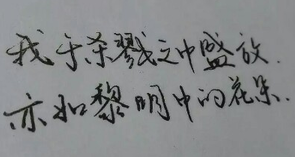 我于杀戮之中盛放.
亦如黎明中的花朵.